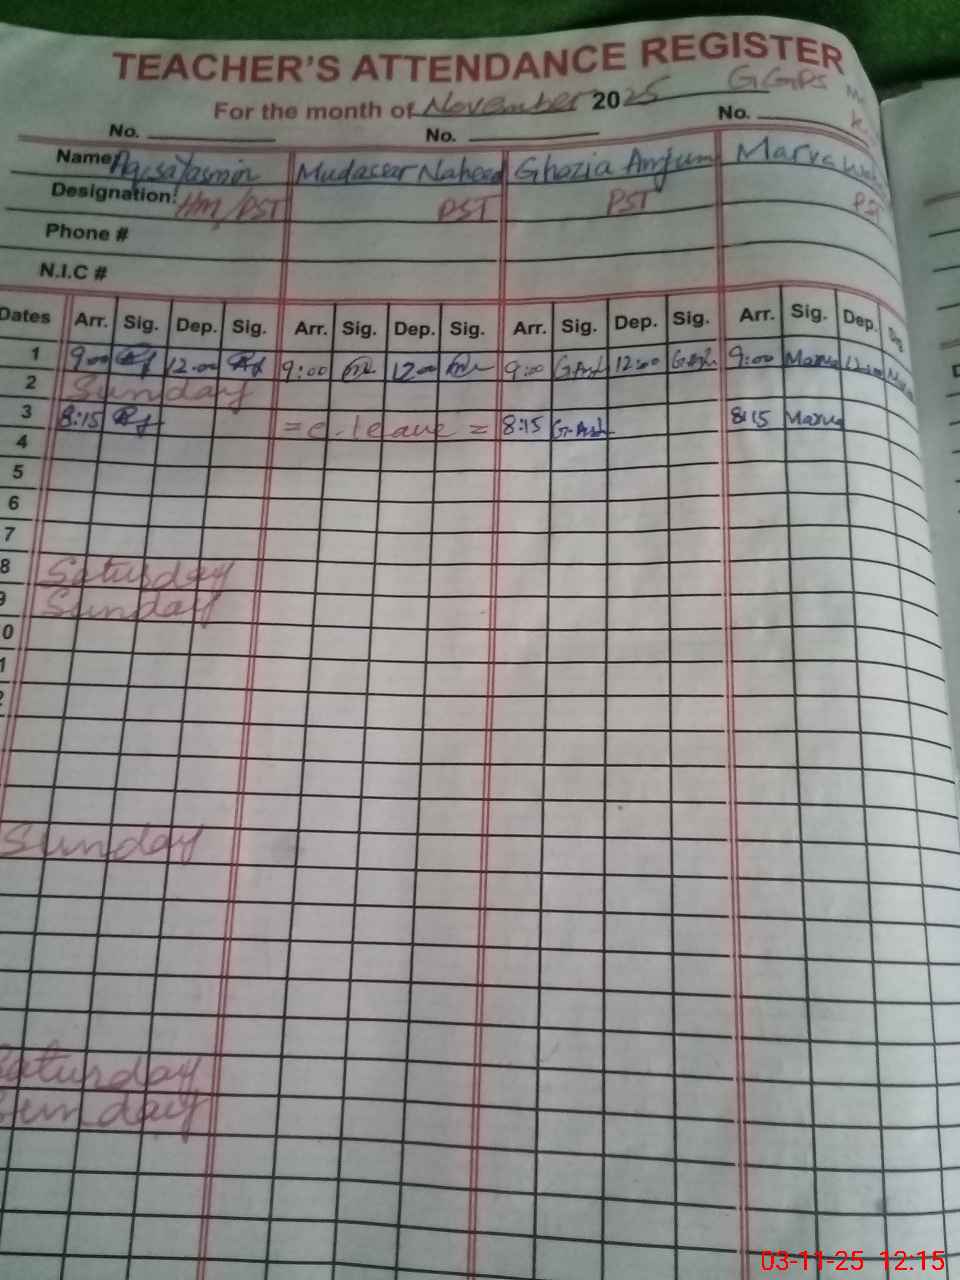 TEACHER'S ATTENDANCE REGISTER
For the month of November 2025 GGPS
No. No. No.
Name Mudassar Naheed Ghazia Amjum Marva
Designation: HM/PST PST PST PST
Phone #
N.I.C #
Dates Arr. Sig. Dep. Sig. Arr. Sig. Dep. Sig. Arr. Sig. Dep. Sig. Arr. Sig. Dep. Sig.
1 9:00 12:00 9:00 12:00 9:00 G.Anj 12:00 G.Anj 9:00 Marva 12:00
2 Sunday
3 8:15 = c-leave = 8:15 G.Anj 8:15 Marva
4
5
6
7
8 Saturday
9 Sunday
0
1
2
Sunday
Saturday
Sunday
03-11-25 12:15